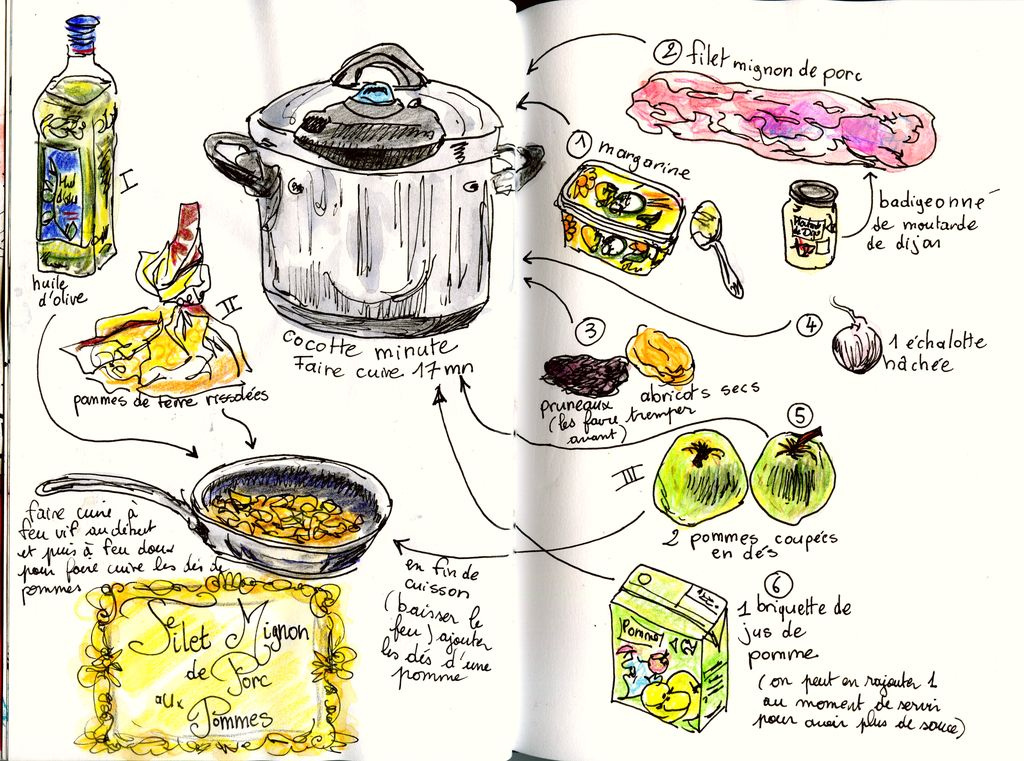 I
Huil
d'olive
huile
d'olive
II
pommes de terre rissolées
cocotte minute
Faire cuire 17 mn
faire cuire à
feu vif au début
et puis à feu doux
pour faire cuire les dés de
pommes
Filet Mignon
de Porc
aux
Pommes
en fin de
cuisson
(baisser le
feu) ajouter
les dés d'une
pomme
2 filet mignon de porc
1 margarine
badigeonné
de moutarde
de dijon
3
pruneaux
abricots secs
(les faire tremper
avant)
4
1 échalotte
hâchée
5
III
2 pommes coupées
en dés
6
1 briquette de
jus de
pomme
(on peut en rajouter 1
au moment de servir
pour avoir plus de sauce)
Pommes